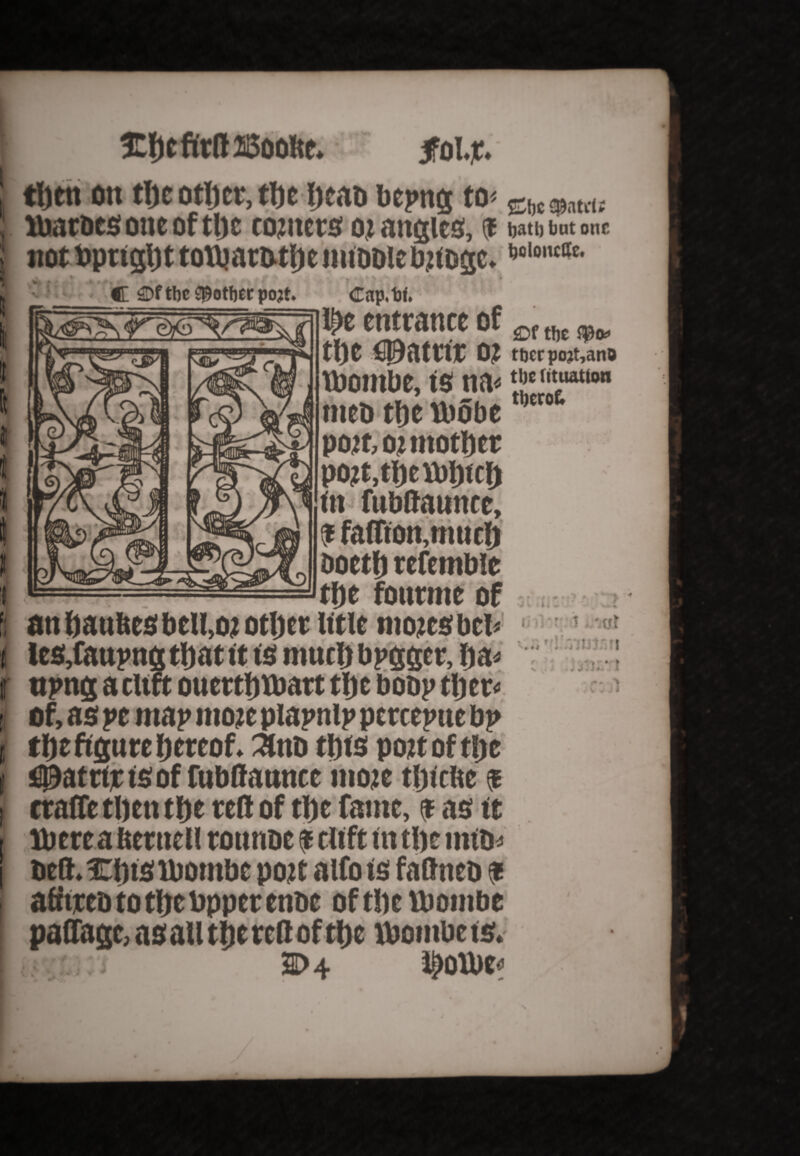 The first Booke. Fol.x.
then on the other, the head beyng to-
wardes one of the corners or angles, &
not vpright toward the middle bridge.
The Matrix
hath but one
holonesse.
¶ Of the Mother port. Cap.vi.
The entrance of
the Matrix or
wombe, is na-
med the wõbe
port, or mother
port, the which
in substaunce,
& fassion, much
doeth resemble
the fourme of
Of the Mo-
ther port, and
the situation
therof.
an haukes bell, or other litle mores bel-
les, sauyng that it is much bygger, ha-
uyng a clift ouerthwart the body ther-
of, as ye may more playnly perceyue by
the figure hereof. And this port of the
Matrix is of substaunce more thicke &
crasse then the rest of the same, & as it
were a kernell rounde & clift in the mid-
dest. This wombe port also is fastned &
affixed to the vpper ende of the wombe
passage, as all the rest of the wombe is.
D4 Howe-